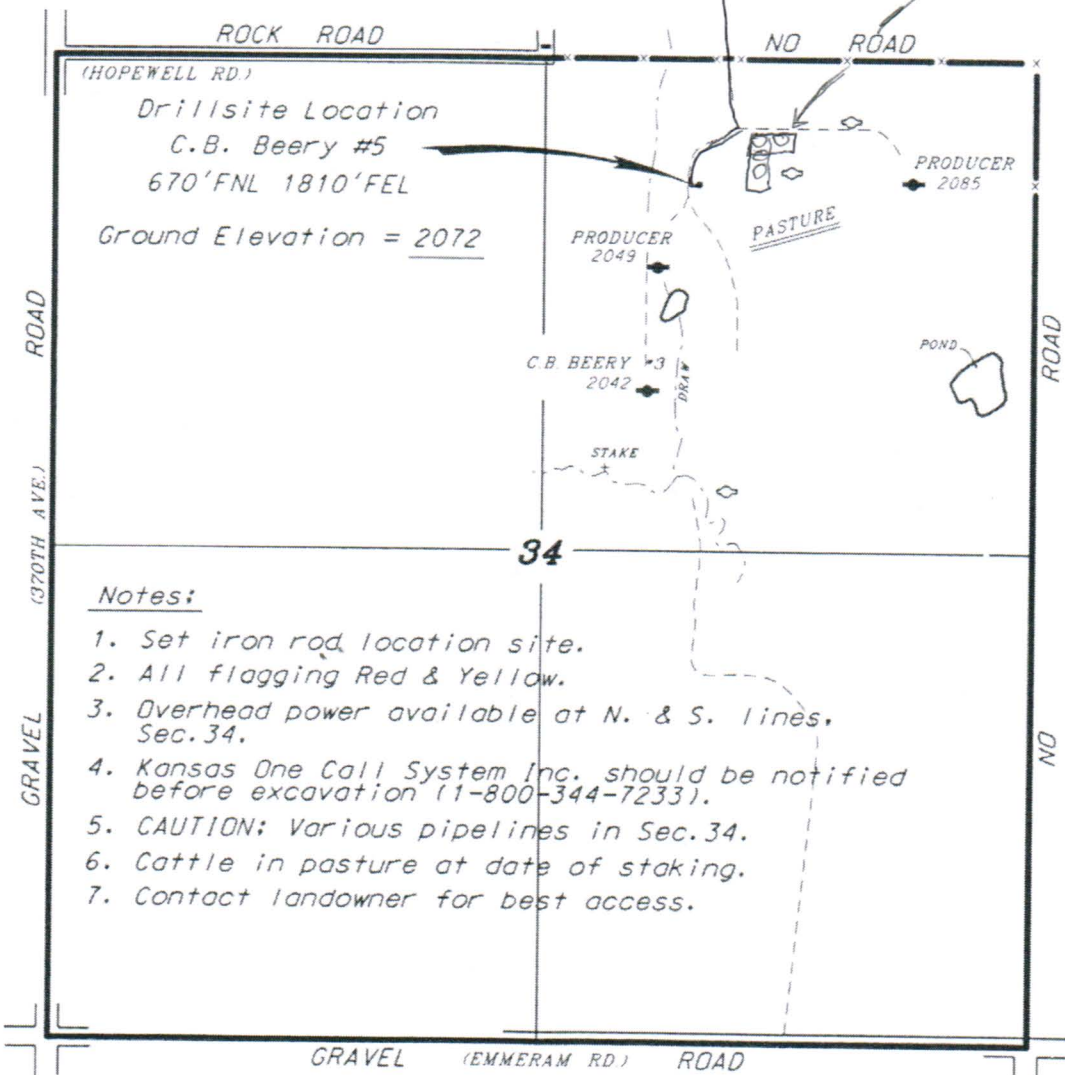 ROCK ROAD
NO ROAD
(HOPEWELL RD.)
Drillsite Location
C.B. Beery #5
670'FNL 1810'FEL
Ground Elevation = 2072
PRODUCER
2085
PASTURE
PRODUCER
2049
ROAD
ROAD
POND
C.B. BEERY #3
2042
DRAW
STAKE
(370TH AVE.)
34
Notes:
1. Set iron rod location site.
2. All flagging Red & Yellow.
3. Overhead power available at N. & S. lines,
Sec.34.
4. Kansas One Call System Inc. should be notified
before excavation (1-800-344-7233).
5. CAUTION: Various pipelines in Sec.34.
6. Cattle in pasture at date of staking.
7. Contact landowner for best access.
GRAVEL
NO
GRAVEL (EMMERAM RD.) ROAD